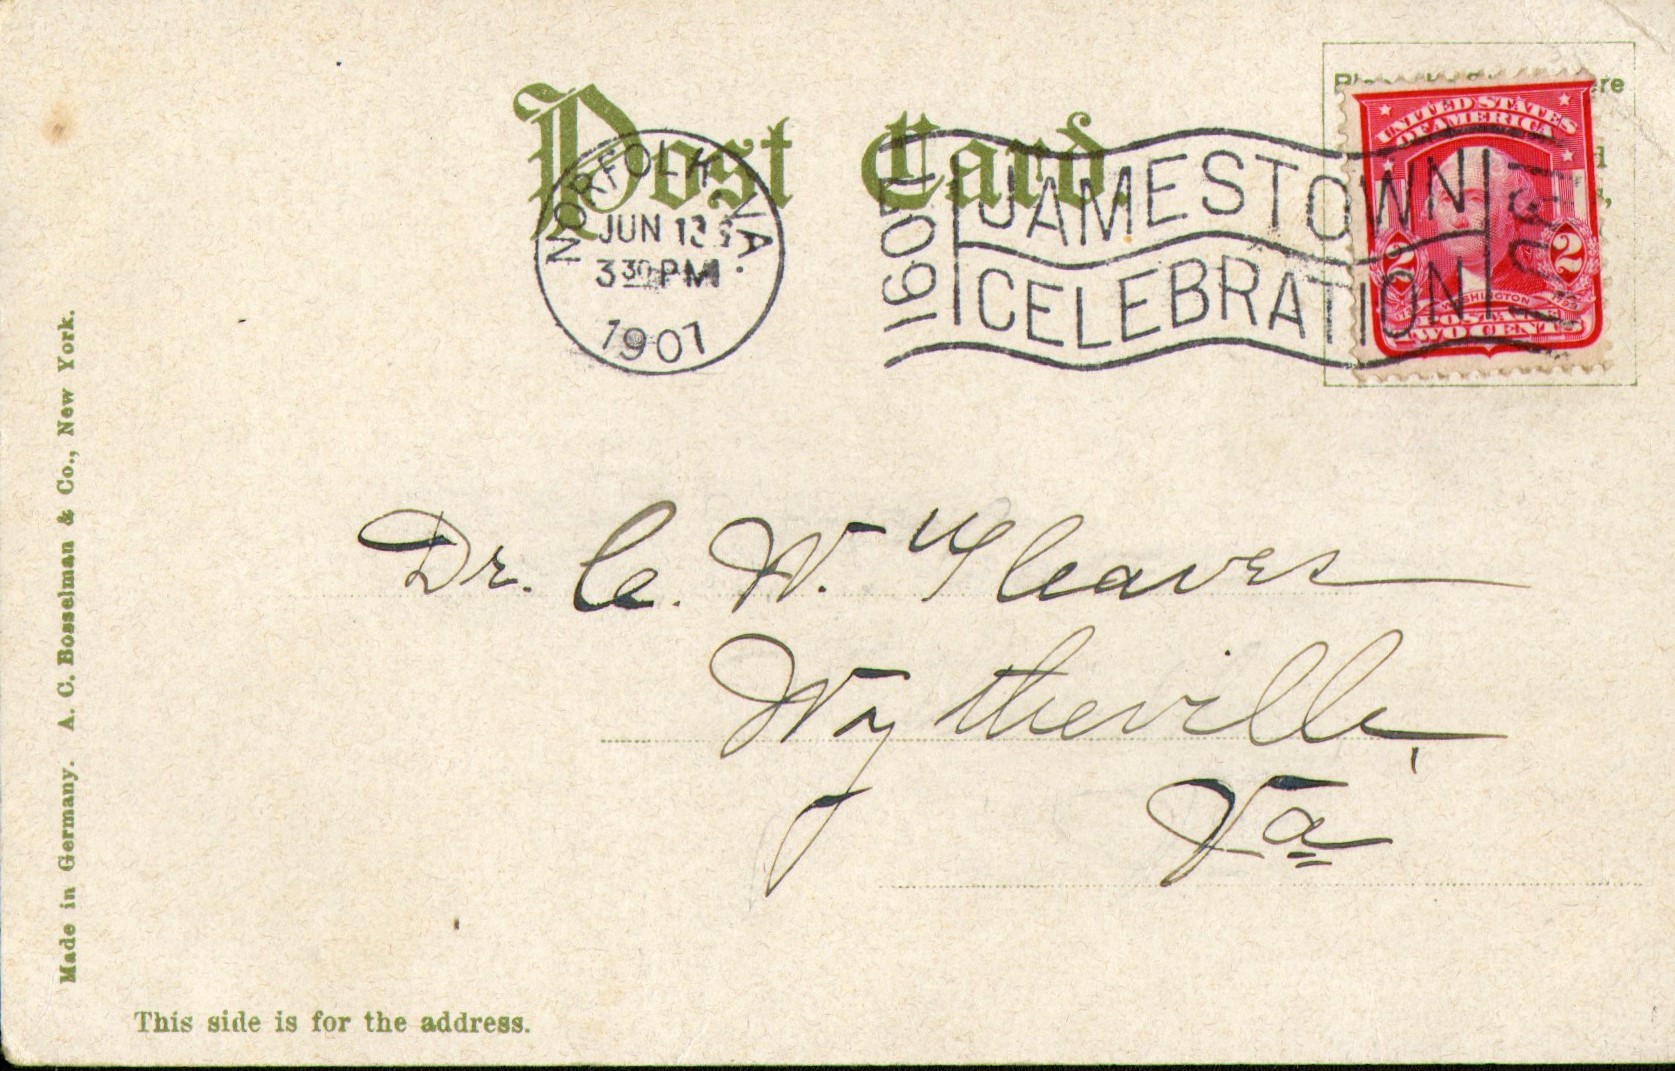 Post Card.
NORFOLK VA.
JUN 13
3 30 PM
1907
1607 JAMESTOWN 1907
CELEBRATION
UNITED STATES
OF AMERICA
2 2
WASHINGTON
TWO CENTS
Dr. C. W. Gleaves
Wytheville,
Va
Made in Germany. A. C. Bosselman & Co., New York.
This side is for the address.